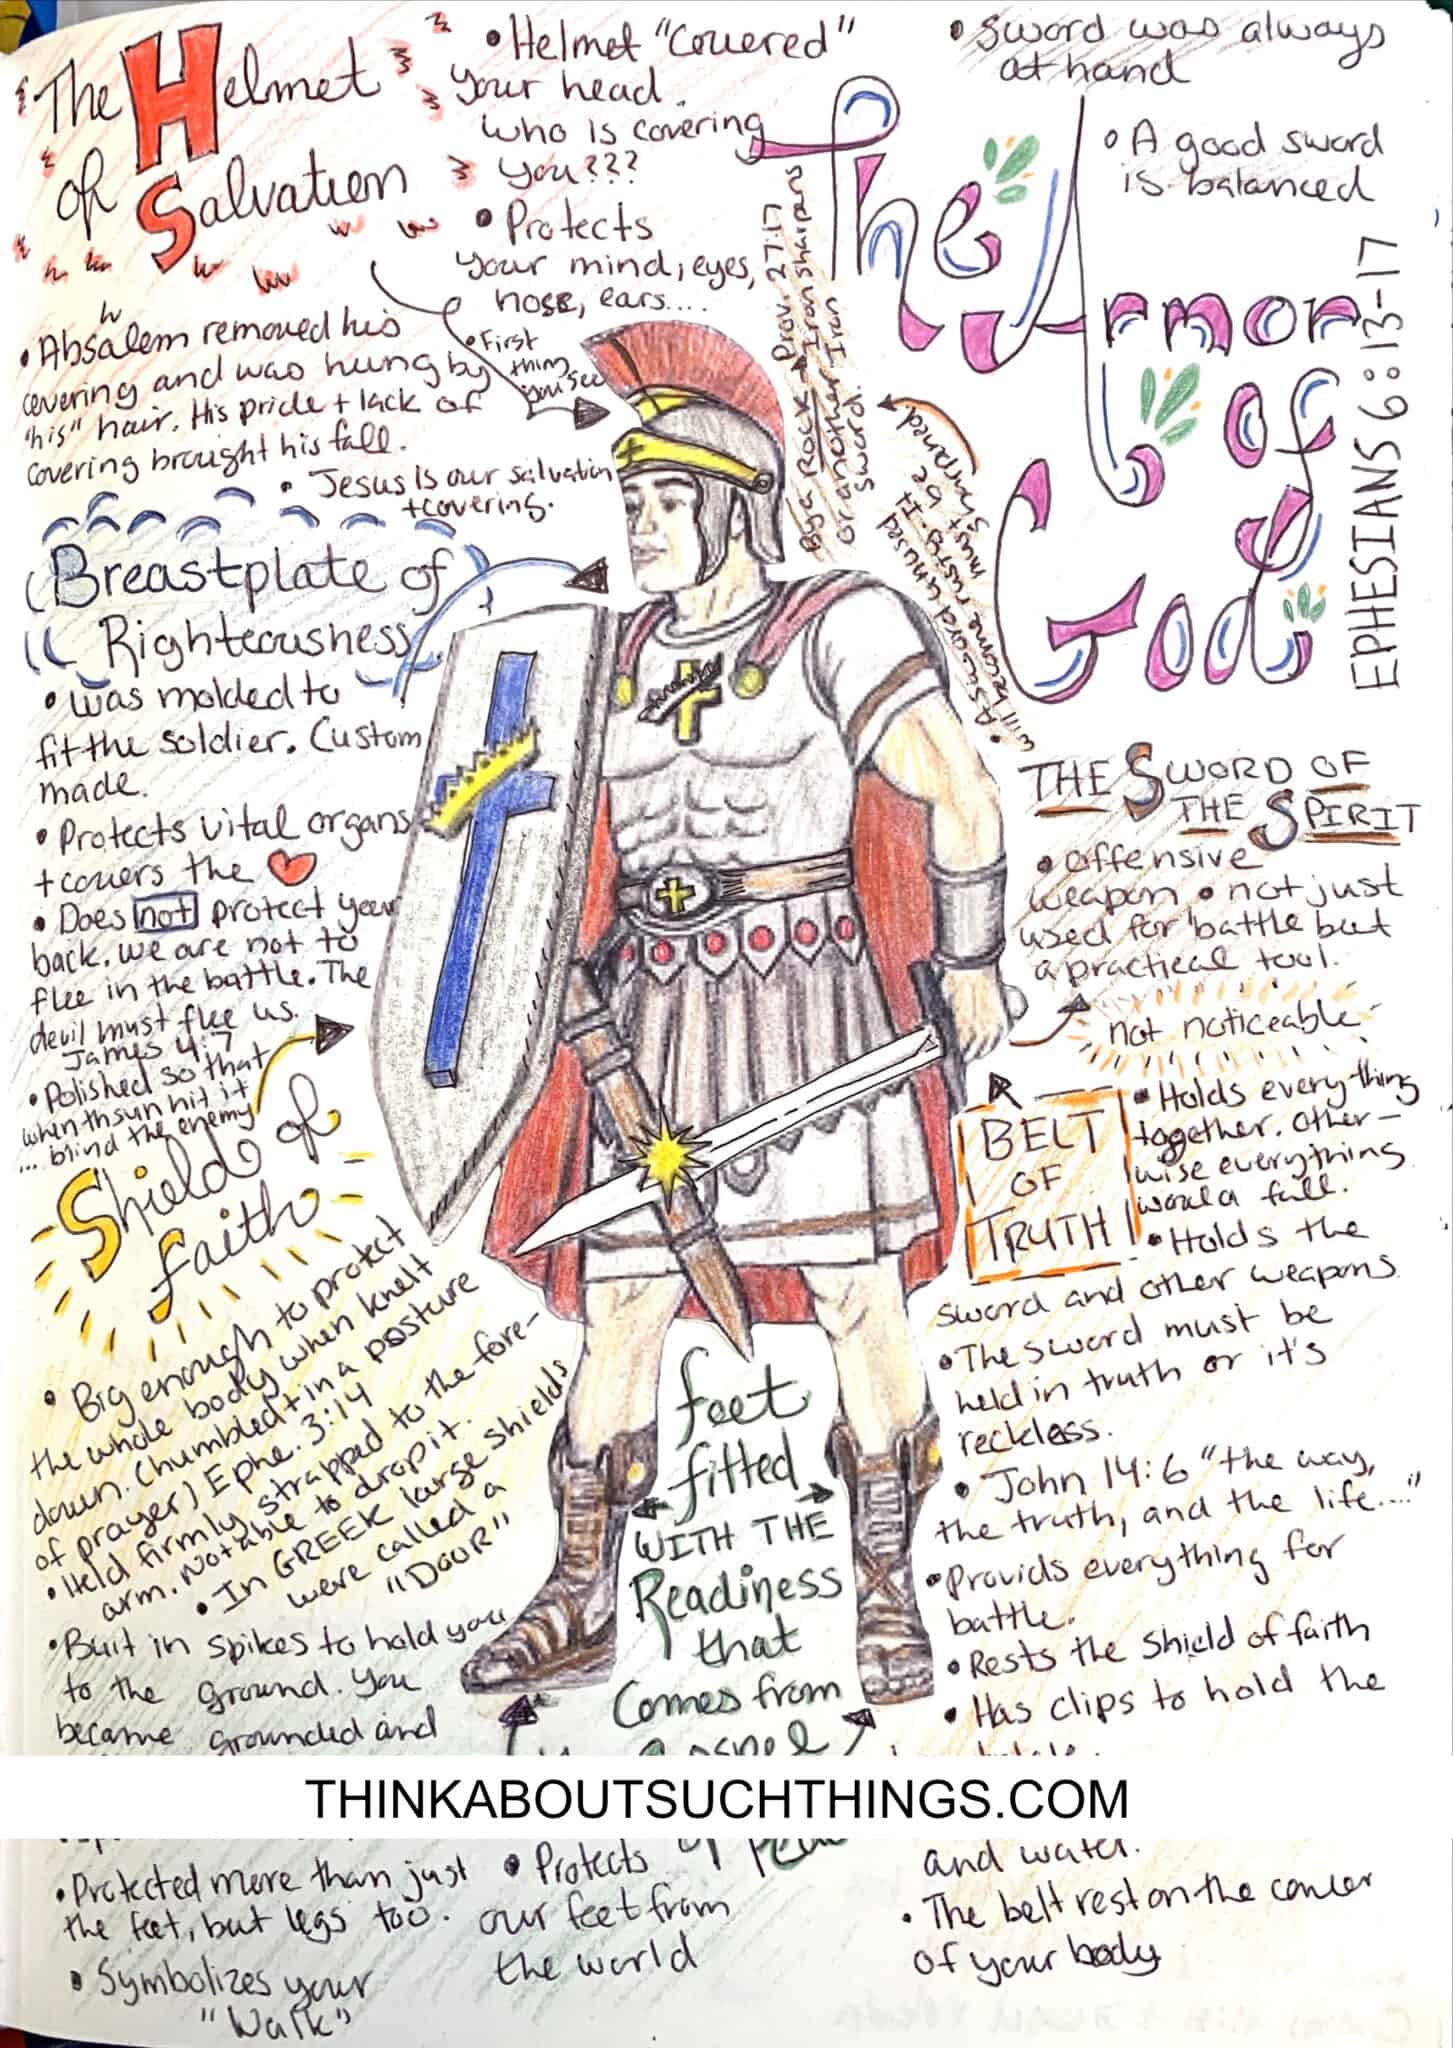 The Helmet
of Salvation
• Helmet "Covered"
your head.
who is covering
you???
• Protects
your mind, eyes,
nose, ears....
• First
thing
you see
• Absalem removed his
covering and was hung by
"his" hair. His pride + lack of
covering brought his fall.
• Jesus is our salvation
+covering.
• Sword was always
at hand
• A good sword
is balanced
The Armor
of
God
EPHESIANS 6:13-17
By a Rock → Prov. 27:17
or another Iron Iron sharpens
sword.
• A sword unused
will become rusty. It
must be
sharpened
Breastplate of
Righteousness
• was molded to
fit the soldier. Custom
made.
• Protects vital organs
+ covers the
• Does not protect your
back. we are not to
flee in the battle. The
devil must flee us.
James 4:7
• Polished so that
when thsun hit it
... blind the enemy
Shield of
faith
• Big enough to protect
the whole body when knelt
down. (humbled + in a posture
of prayer) Ephe. 3:14
• Held firmly strapped to the fore-
arm. Not able to drop it.
• In GREEK large shields
were called a
"DOOR"
THE SWORD OF
THE SPIRIT
• offensive
weapon • not just
used for battle but
a practical tool.
not noticeable
BELT
OF
TRUTH
• Holds everything
together. Other-
wise everything
would fall.
• Holds the
sword and other weapons
• The sword must be
held in truth or it's
reckless.
• John 14:6 "the way,
the truth, and the life...."
• Provids everything for
battle.
• Rests the Shield of faith
• Has clips to hold the
and water.
• The belt rest on the
of your body
feet
fitted
WITH THE
Readiness
that
Comes from
gospel
of
• Built in spikes to hold you
to the ground. You
became grounded and
THINKABOUTSUCHTHINGS.COM
• Protected more than just
the feet, but legs too.
• Symbolizes your
"Walk"
• Protects
our feet from
the world